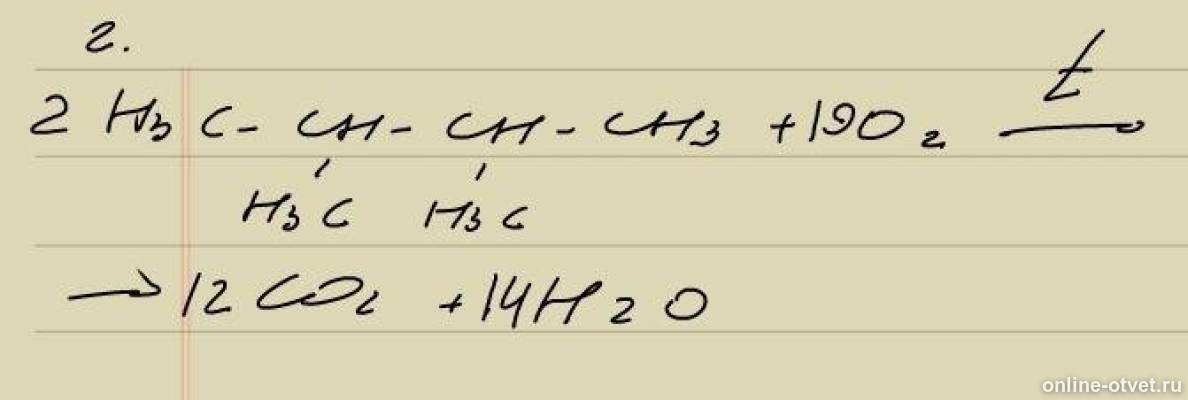 2.
2 H3C - CH - CH - CH3 + 19O2 t →
H3C H3C
→ 12 CO2 + 14H2O
online-otvet.ru